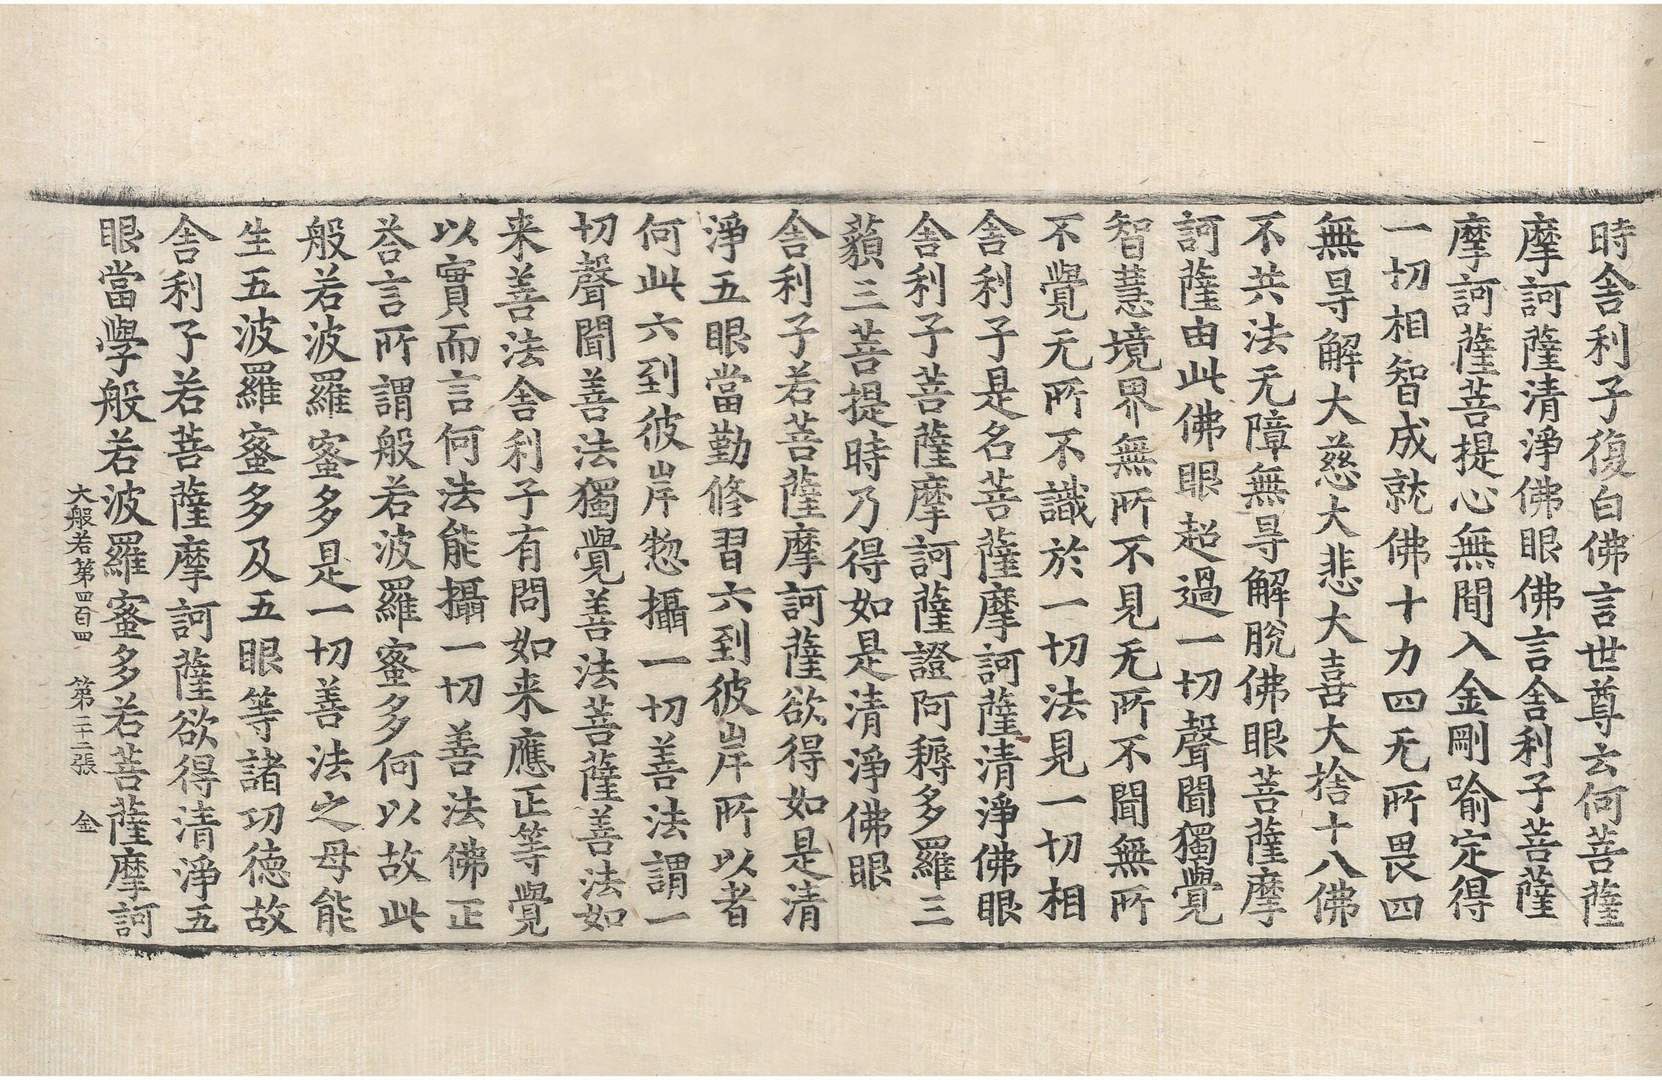 時舎利子復白佛言世尊云何菩薩
摩訶薩清淨佛眼佛言舎利子菩薩
摩訶薩菩提心無間入金剛喻定得
一切相智成就佛十力四无所畏四
無㝵解大慈大悲大喜大捨十八佛
不共法无障無㝵解脫佛眼菩薩摩
訶薩由此佛眼超過一切聲聞獨覺
智慧境界無所不見无所不聞無所
不覺无所不識於一切法見一切相
舎利子是名菩薩摩訶薩清淨佛眼
舎利子菩薩摩訶薩證阿耨多羅三
藐三菩提時乃得如是清淨佛眼
舎利子若菩薩摩訶薩欲得如是清
淨五眼當勤修習六到彼岸所以者
何此六到彼岸惣攝一切善法謂一
切聲聞善法獨覺善法菩薩善法如
来善法舎利子有問如来應正等覺
以實而言何法能攝一切善法佛正
荅言所謂般若波羅蜜多何以故此
般若波羅蜜多是一切善法之母能
生五波羅蜜多及五眼等諸功德故
舎利子若菩薩摩訶薩欲得清淨五
眼當學般若波羅蜜多若菩薩摩訶
大般若第四百四 第二十二張 金